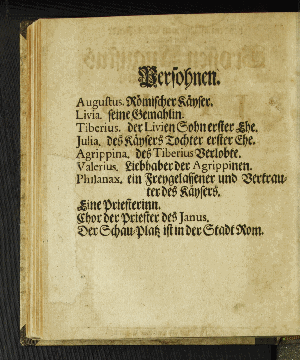 Persohnen.
Augustus. Römischer Käyser.
Livia. seine Gemahlin.
Tiberius. der Livien Sohn erster Ehe.
Julia. des Käysers Tochter erster Ehe.
Agrippina. des Tiberius Verlobte.
Valerius. Liebhaber der Agrippinen.
Philanax. ein Freygelassener und Vertrau-
ter des Käysers.
Eine Priesterinn.
Chor der Priester des Janus.
Der Schau-Platz ist in der Stadt Rom.